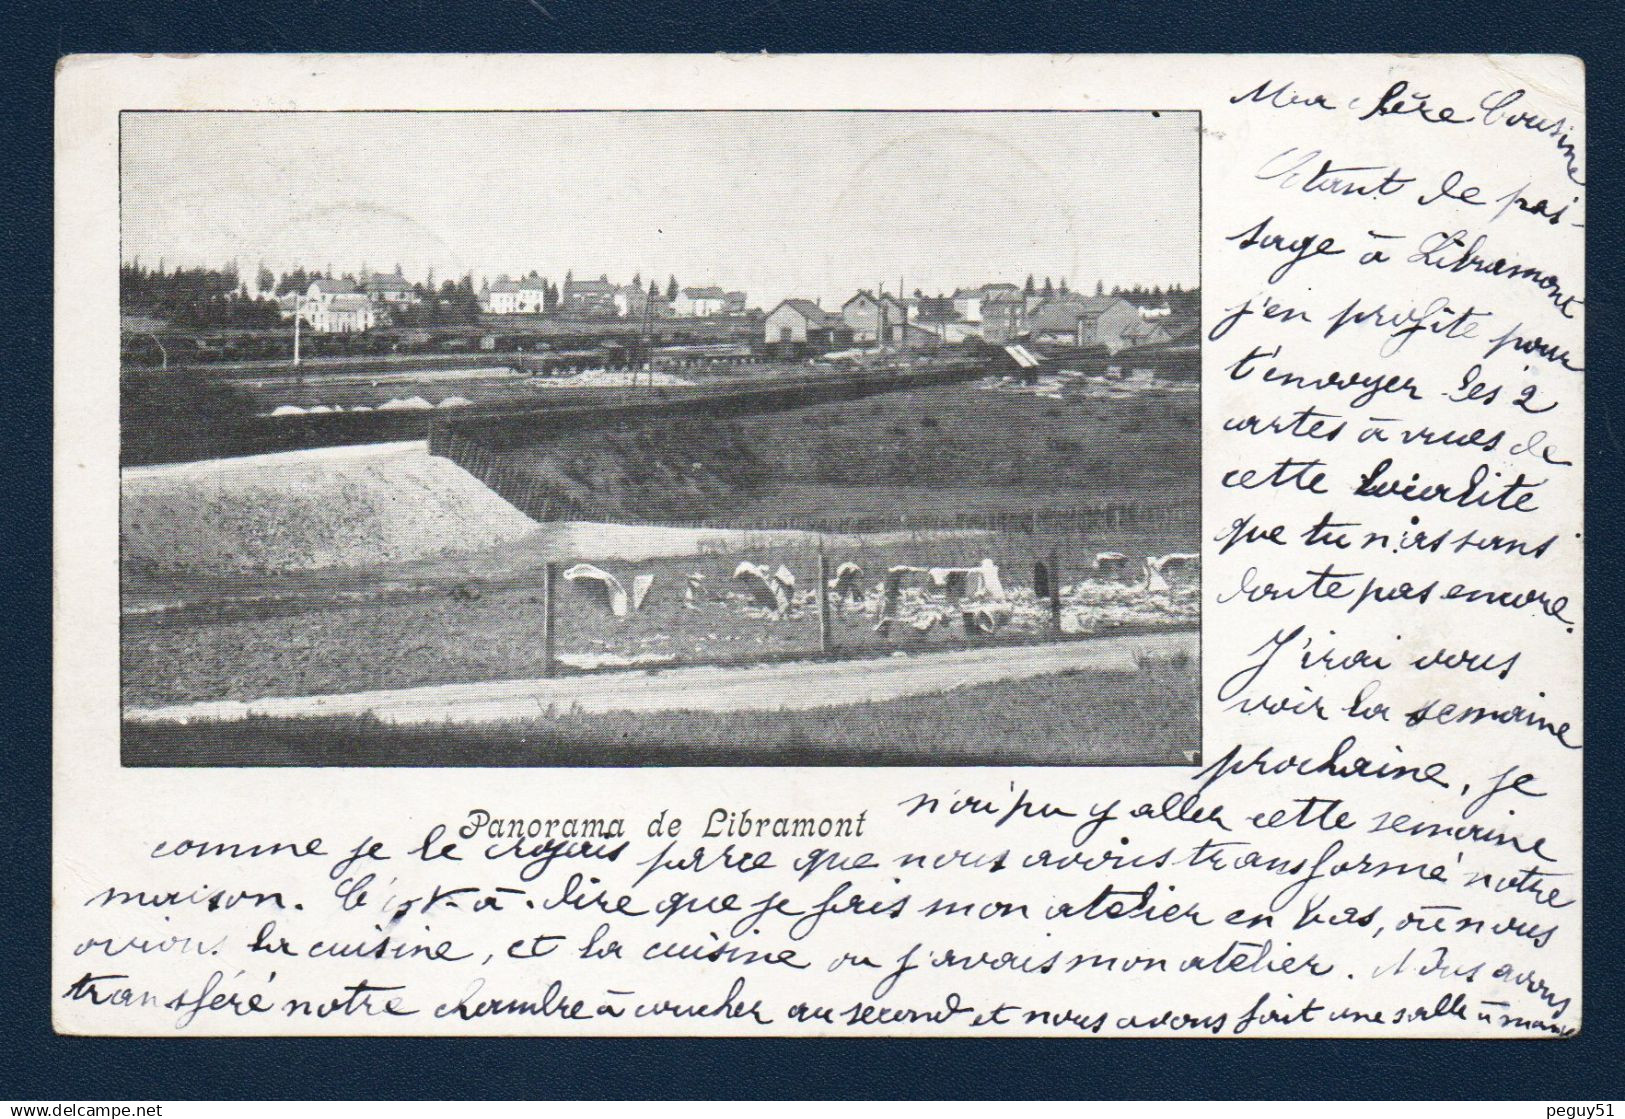 Ma chère Cousine
Etant de pas-
sage à Libramont
j'en profite pour
t'envoyer les 2
cartes à vues de
cette localité
que tu n'as sans
doute pas encore.
J'irai vous
voir la semaine
prochaine, je
n'ai pu y aller cette semaine
Panorama de Libramont
comme je le croyais parce que nous avons transformé notre
maison. C'est-à-dire que je fais mon atelier en bas, où nous
avions la cuisine, et la cuisine ou j'avais mon atelier. Nous avons
transféré notre chambre à coucher au second et nous avons fait une salle à mang
peguy51